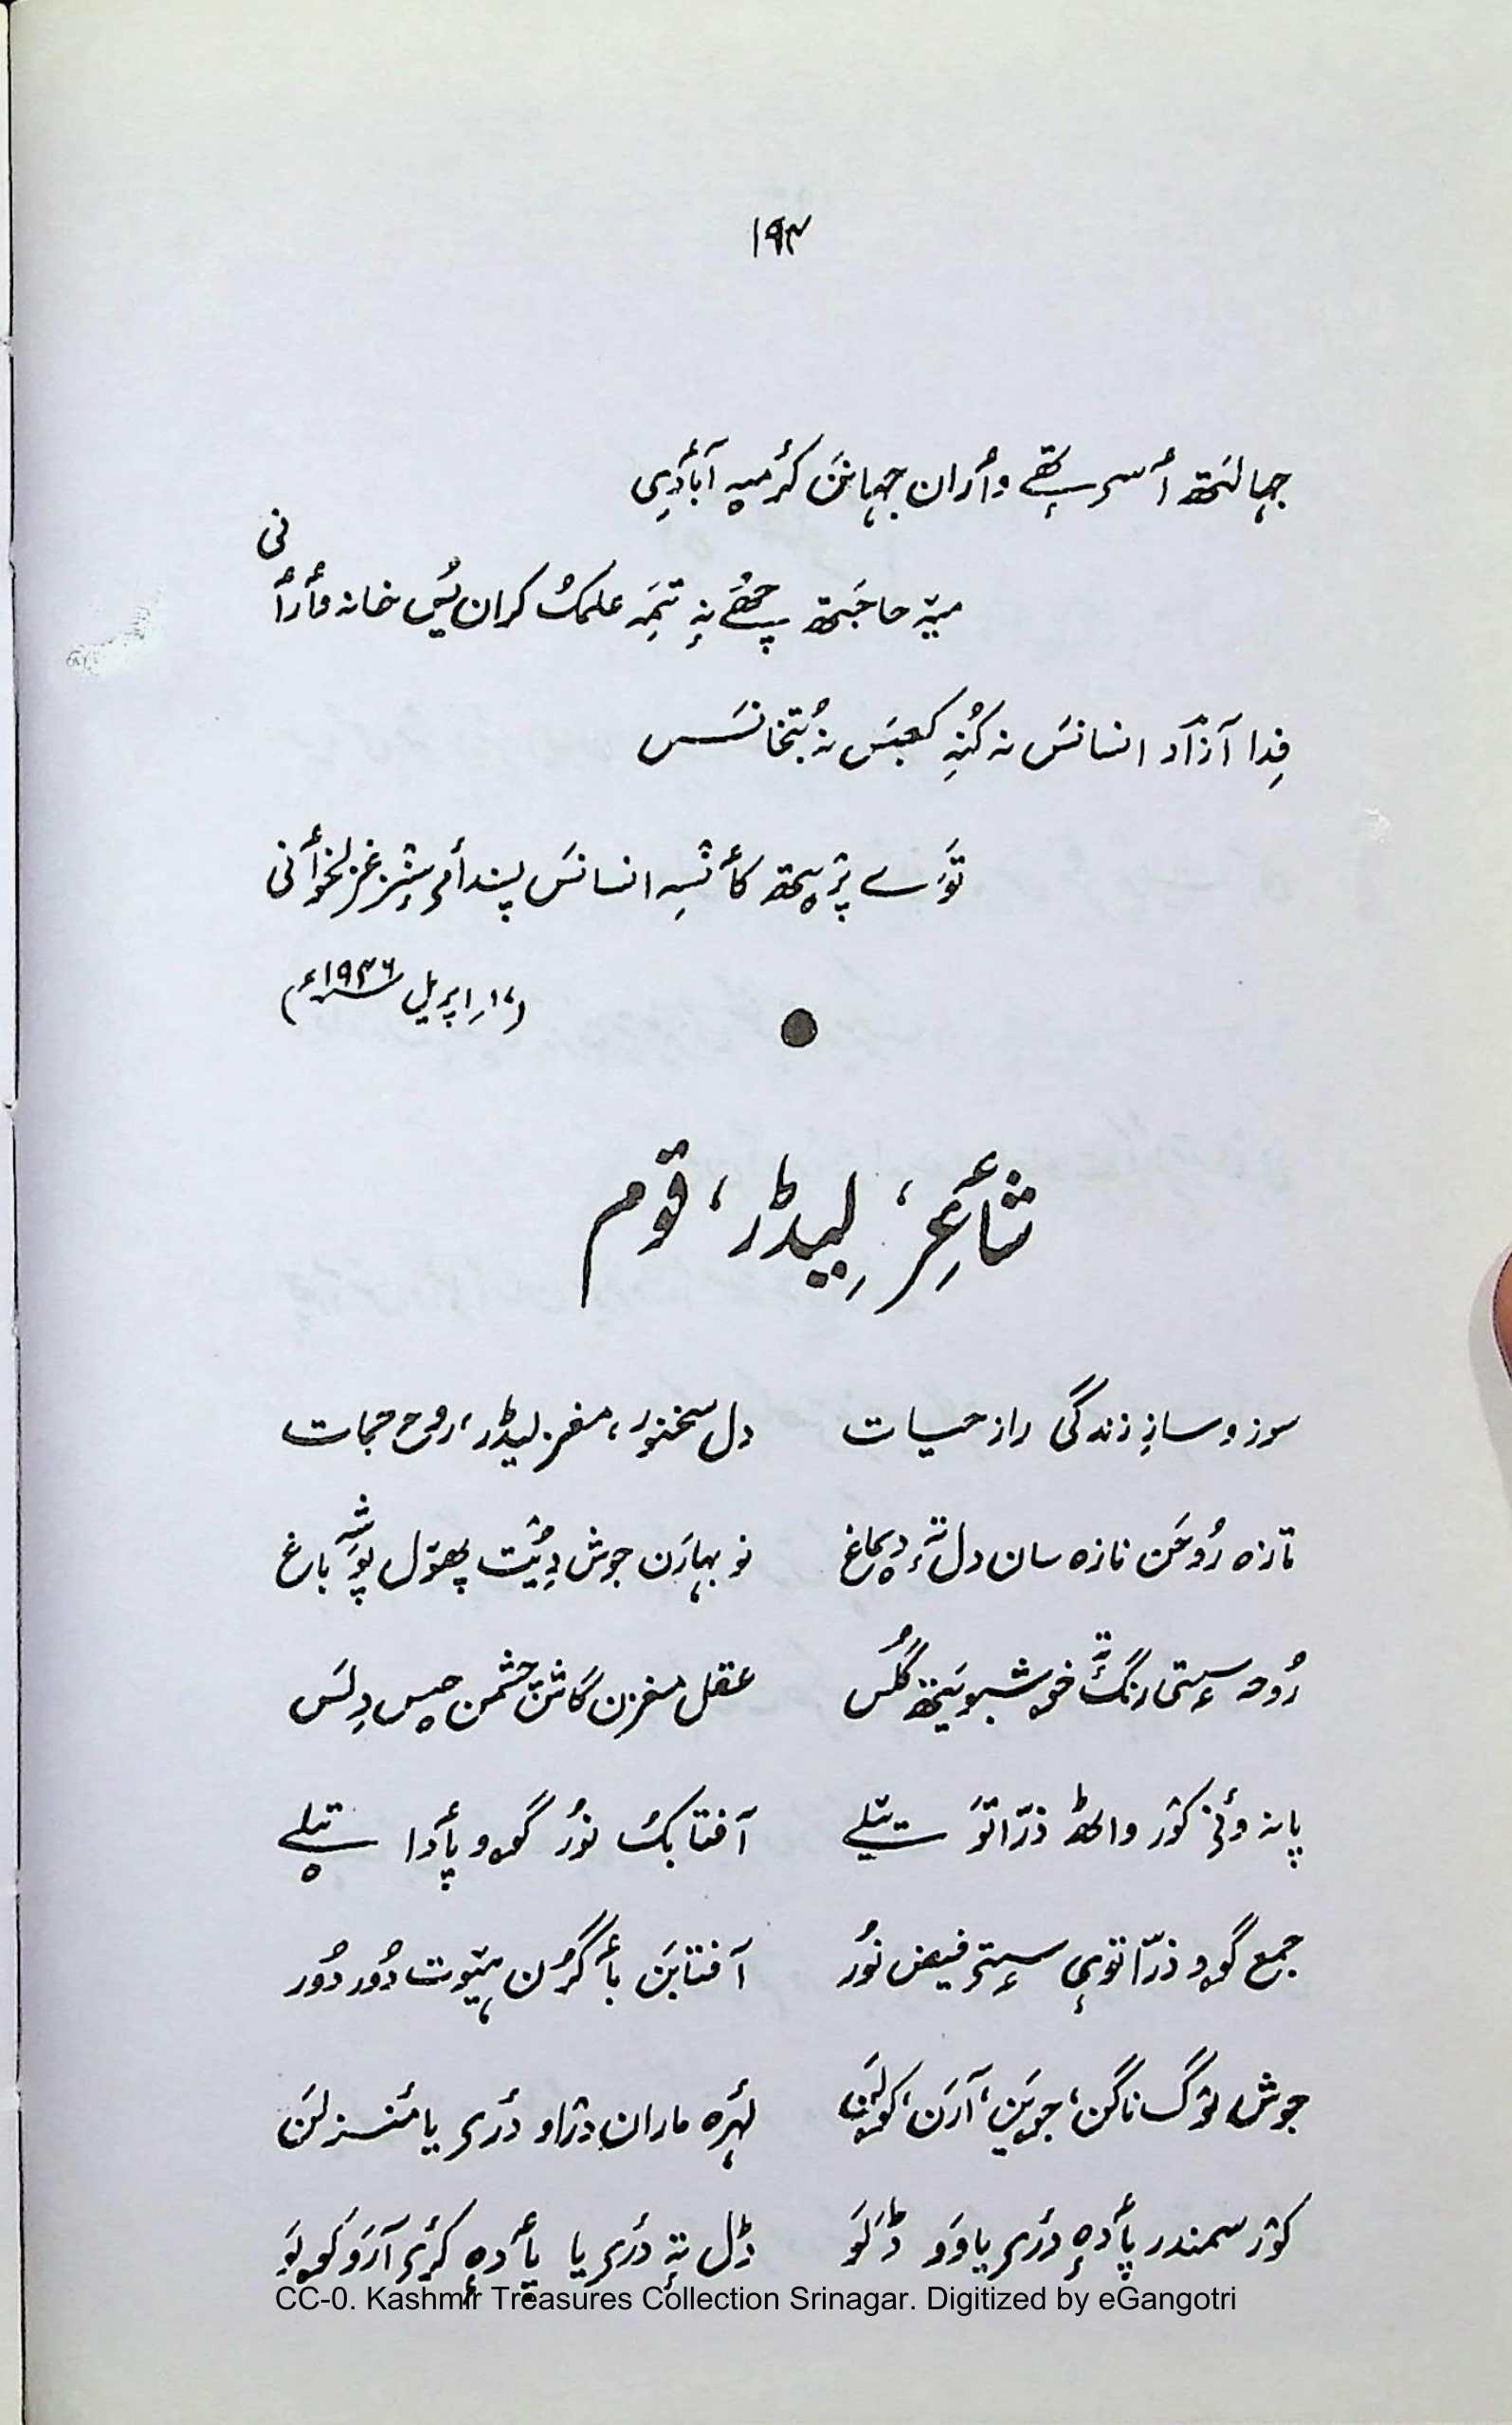 ۱۹۳
جہالَتھ أسۍ یتھے وٲران جہانَن کرٕ میہ آبٲدی
میٚہ حاجَتھ چھَے نہٕ تَمہِ علمُک کران یُس خانہ وٲرٲنی
فِدا آزاد انسانَس نہ کُنہِ کعبَس نہ بُتخانَس
تَوَے پژیٖتھ کٲنٛسہِ انسانَس پسند أمۍ سٕنٛز غزلخوٲنی
(۱۷؍اپریل ۱۹۳۶ء)
شٲعِر، لیڈر، قوم
سوز و سازِ زندگی راز حیات دل سخنور، مغز لیڈر، روح جمات
تازہ رُوحَن تازہ سان دل تہٕ دِماغ نو بہارَن جوش دِیُت پھۄل پوشہِ باغ
رُوحہ سٟتۍ رنگ تہٕ خوشبو یَتھ گُلَس عقل مغزن گاش چشمن حِس دِلَس
پانہ وٲنۍ کۆر واٹھ ذرّاتَو یتیلے آفتابُک نوٗر گوو پٲدا تیلے
جمع گوو ذرّاتوٕے سٟتۍ فیض نوٗر آفتابَن بٲگرُن ہیوت دوٗر دوٗر
جوش لۆگ ناگن، جویَن، آرَن، کۄلَن لہرٕ ماران دراو دٔریا منٛز لَن
کۆر سمندر پٲدٕہ دٔریاوَو ڈَلَو ڈل تہٕ دٔریا پٲدٕہ کٔرۍ آرَو کۄلَو
CC-0. Kashmir Treasures Collection Srinagar. Digitized by eGangotri